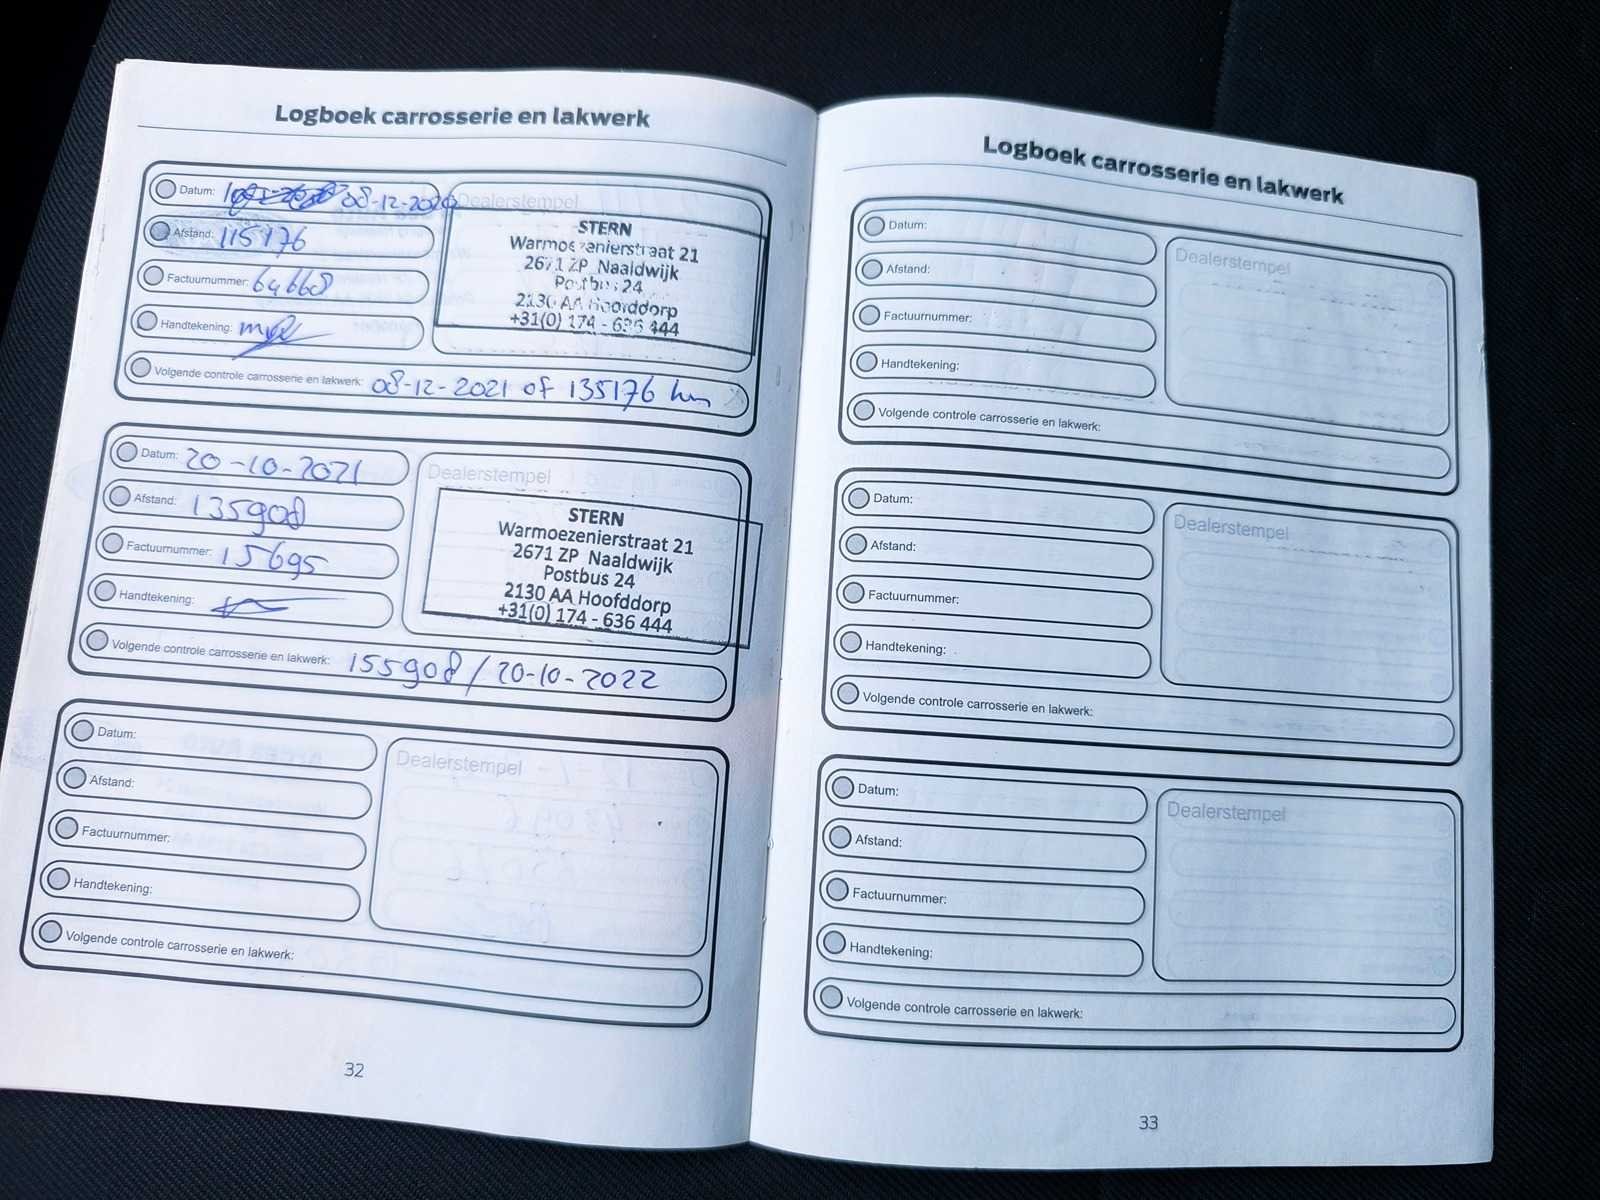 Logboek carrosserie en lakwerk
Datum: 08-12-2020
Afstand: 115176
Factuurnummer: 64668
Handtekening:
Dealerstempel
STERN
Warmoezenierstraat 21
2671 ZP Naaldwijk
Postbus 24
2130 AA Hoofddorp
+31(0) 174 - 636 444
Volgende controle carrosserie en lakwerk: 08-12-2021 of 135176 km
Datum: 20-10-2021
Afstand: 135908
Factuurnummer: 15695
Handtekening:
Dealerstempel
STERN
Warmoezenierstraat 21
2671 ZP Naaldwijk
Postbus 24
2130 AA Hoofddorp
+31(0) 174 - 636 444
Volgende controle carrosserie en lakwerk: 155908 / 20-10-2022
Datum:
Afstand:
Factuurnummer:
Handtekening:
Dealerstempel
Volgende controle carrosserie en lakwerk:
32
Logboek carrosserie en lakwerk
Datum:
Afstand:
Factuurnummer:
Handtekening:
Dealerstempel
Volgende controle carrosserie en lakwerk:
Datum:
Afstand:
Factuurnummer:
Handtekening:
Dealerstempel
Volgende controle carrosserie en lakwerk:
Datum:
Afstand:
Factuurnummer:
Handtekening:
Dealerstempel
Volgende controle carrosserie en lakwerk:
33